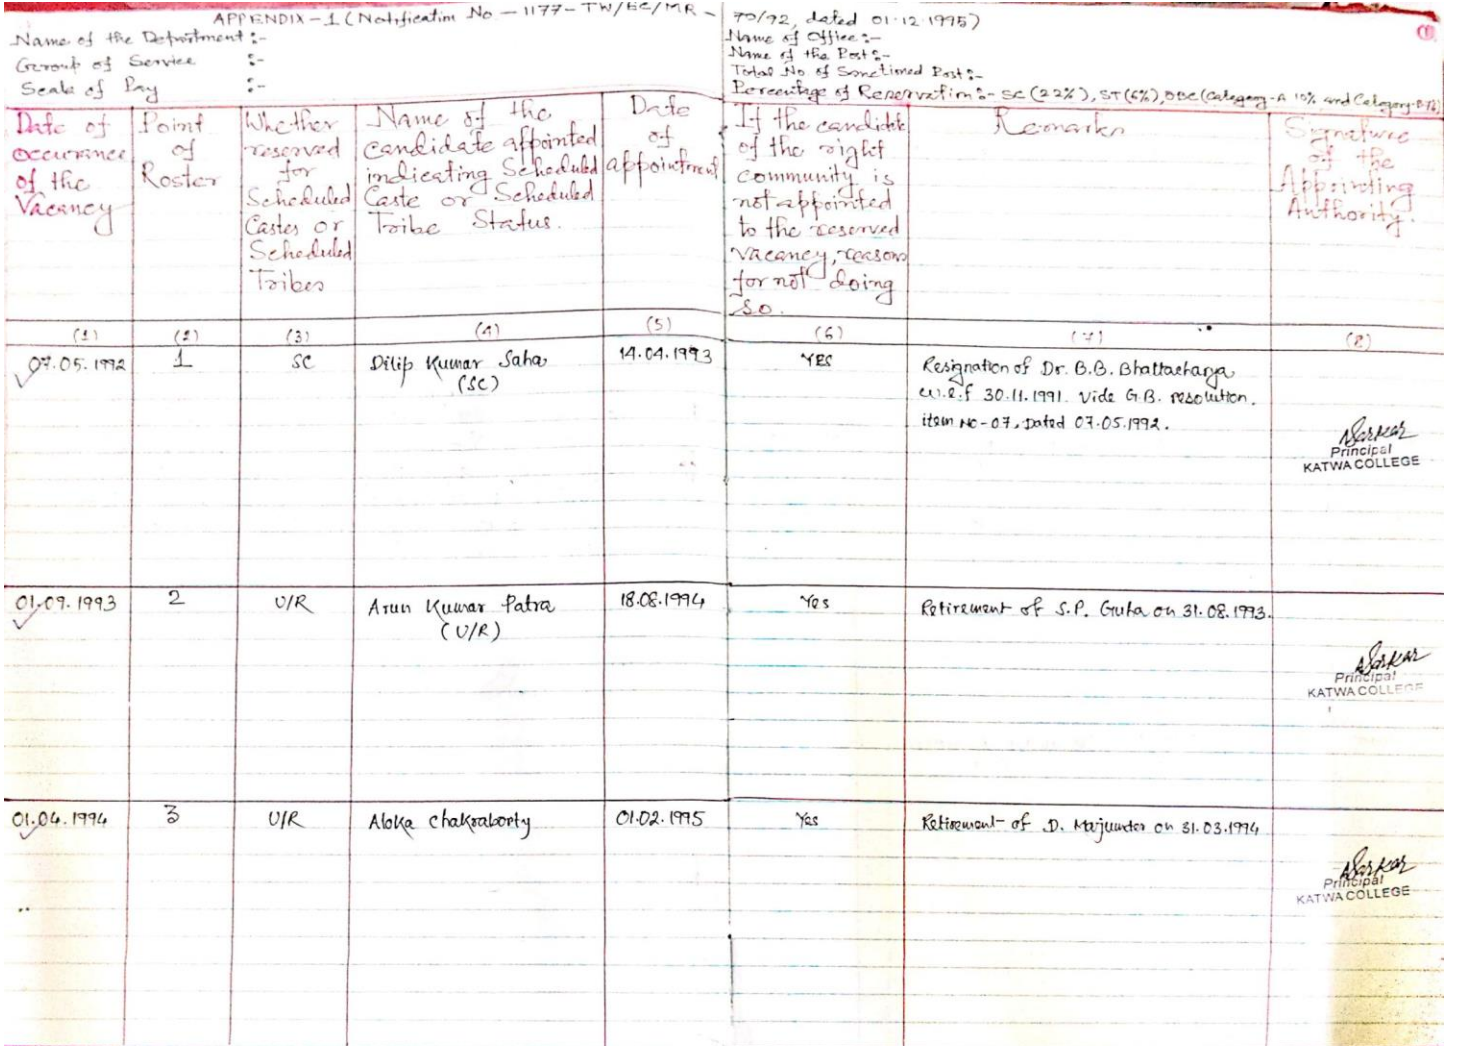 APPENDIX-1 (Notification No - 1177-TW/EC/MR - 70/92, dated 01.12.1995)
Name of the Department :-
Group of Service :-
Scale of Pay :-
Name of Office :-
Name of the Post :-
Total No. of Sanctioned Post :-
Percentage of Reservation :- SC (22%), ST (6%), OBC (Category-A 10% and Category-B
Date of
Occurance
of the
Vacancy
Point
of
Roster
Whether
reserved
for
Scheduled
Castes or
Scheduled
Tribes
Name of the
candidate appointed
indicating Scheduled
Caste or Scheduled
Tribe Status.
Date
of
appointment
If the candidate
of the right
community is
not appointed
to the reserved
vacancy, reason
for not doing
so.
Remarks
Signature
of the
Appointing
Authority.
(1) (2) (3) (4) (5) (6) (7) (8)
07.05.1992 1 SC Dilip Kumar Saha 14.04.1993 YES Resignation of Dr. B.B. Bhattacharya
(SC) w.e.f 30.11.1991. Vide G.B. resolution.
item No-07, Dated 07.05.1992.
Sarkar
Principal
KATWA COLLEGE
01.09.1993 2 U/R Arun Kumar Patra 18.08.1994 Yes Retirement of S.P. Guha on 31.08.1993.
(U/R)
Sarkar
Principal
KATWA COLLEGE
01.04.1994 3 U/R Aloka Chakraborty 01.02.1995 Yes Retirement of D. Majumder on 31.03.1994
Sarkar
Principal
KATWA COLLEGE